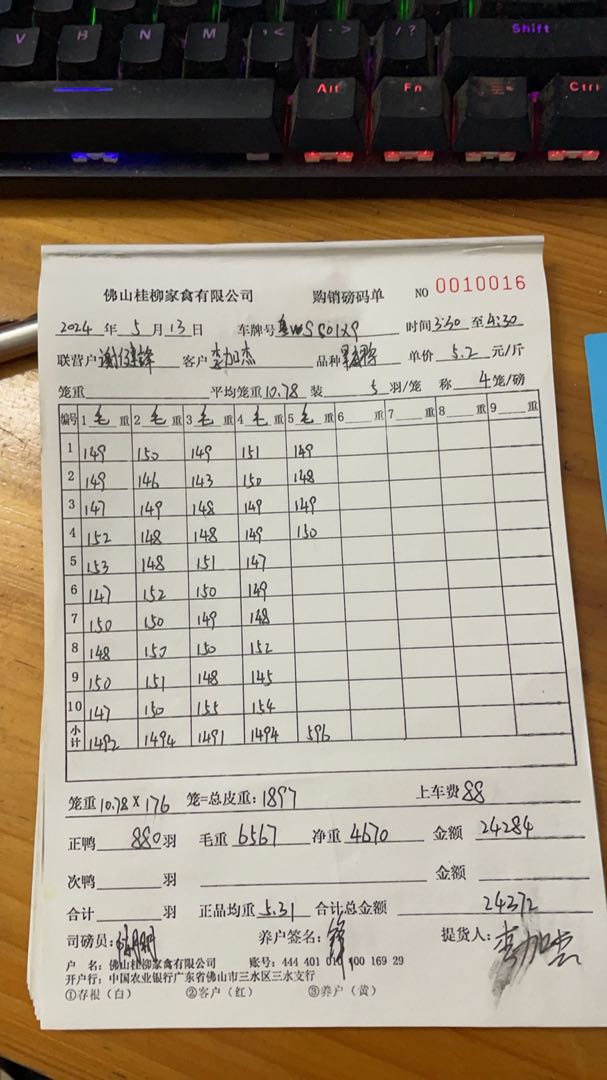 V B N M , < . > / ? Shift
Alt Fn Ctrl
佛山桂柳家禽有限公司 购销磅码单 NO 0010016
2024 年 5 月 13 日 车牌号 时间 3:30 至 4:30
联营户 客户 李加杰 品种 单价 5.2 元/斤
笼重 平均笼重 10.78 装 5 羽/笼 称 4 笼/磅
编号 1 毛 重 2 毛 重 3 毛 重 4 毛 重 5 毛 重 6 重 7 重 8 重 9 重
1 149 150 149 151 149
2 149 146 143 150 148
3 147 149 148 149 149
4 152 148 148 149 150
5 153 148 151 147
6 147 152 150 149
7 150 150 149 148
8 148 150 150 152
9 150 151 148 145
10 147 150 155 154
小计 1492 1494 1491 1494 596
笼重 10.78 × 176 笼=总皮重: 1897 上车费 88
正鸭 880 羽 毛重 6567 净重 4670 金额 24284
次鸭 羽 金额
合计 羽 正品均重 5.31 合计总金额 24372
司磅员: 养户签名: 锋 提货人: 李加杰
户 名: 佛山桂柳家禽有限公司 账号: 444 401 010 400 169 29
开户行: 中国农业银行广东省佛山市三水区三水支行
①存根(白) ②客户(红) ③养户(黄)